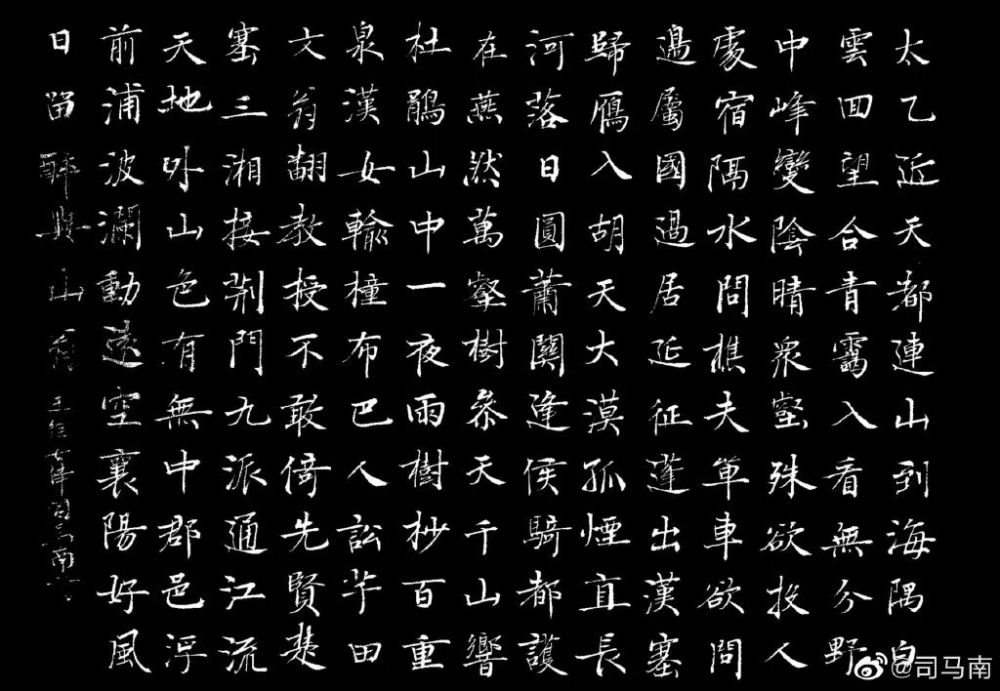 太乙近天都連山到海隅白
雲回望合青靄入看無分野
中峰變陰晴眾壑殊欲投人
處宿隔水問樵夫單車欲問
邊屬國過居延征蓬出漢塞
歸鴈入胡天大漠孤煙直長
河落日圓蕭關逢侯騎都護
在燕然萬壑樹參天千山響
杜鵑山中一夜雨樹杪百重
泉漢女輸橦布巴人訟芋田
文翁翻教授不敢倚先賢楚
塞三湘接荊門九派通江流
天地外山色有無中郡邑浮
前浦波瀾動遠空襄陽好風
日留醉與山翁 王維 司馬南
@司马南